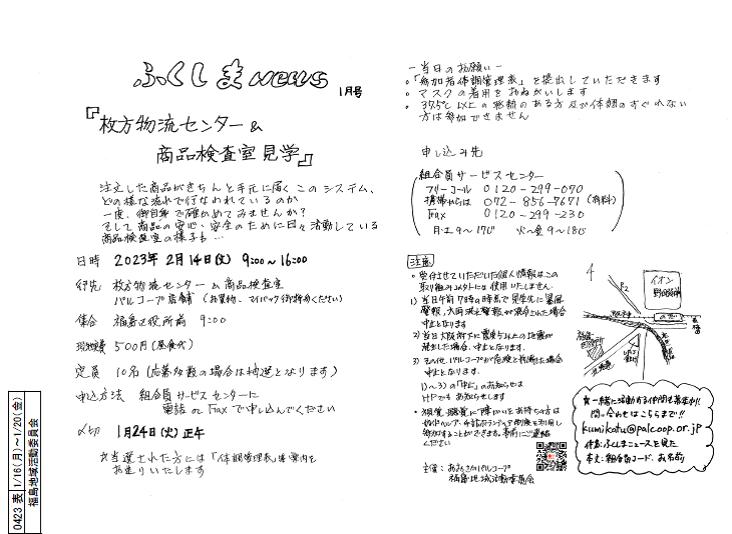 ふくしまnews 1月号
『枚方物流センター&
商品検査室見学』
注文した商品がきちんと手元に届くこのシステム、
どの様な流れで行なわれているのか
一度、御自身で確かめてみませんか?
そして商品の安心・安全のために日々活動している
商品検査室の様子も…
日時 2023年2月14日(火) 9:00~16:00
行先 枚方物流センター&商品検査室
パルコープ店舗 (お買物、マイバック御持参ください)
集合 福島区役所前 9:00
参加費 500円(昼食代)
定員 10名(応募多数の場合は抽選となります)
申込方法 組合員サービスセンターに
電話 or Faxで申し込んでください
〆切 1月24日(火)正午
※当選された方には「体調管理表」等案内を
お送りいたします
0423 表 1/16(月)~1/20(金)
福島地域活動委員会
ー当日のお願いー
○「参加者体調管理表」を提出していただきます
○マスクの着用をおねがいします
○37.5℃以上の発熱のある方及び体調のすぐれない
方は参加できません
申し込み先
組合員サービスセンター
フリーコール 0120-299-070
携帯からは 072-856-7671(有料)
Fax 0120-299-230
月・土 9~17じ 火~金 9~18じ
注意
○受付させていただいた個人情報はこの
取り組み以外には使用いたしません
1)当日午前7時の時点で発生に暴風
警報、大雨洪水警報が発令された場合
中止となります
2)当日大阪府下に震度5以上の地震が
発生した場合、中止となります。
3)その他パルコープが危険と判断した場合
中止となります。
1)~3)の「中止」のお知らせは
HPでもお知らせします
○視覚・聴覚に障がいをお持ちの方は
ガイドヘルプ・手話ボランティア制度を利用し
参加することができます。事前にご連絡
ください
主催:おおさかパルコープ
福島地域活動委員会
イオン
野田阪神
★一緒に活動する仲間も募集中!!
問い合わせはこちらまで!!
kumikatu@palcoop.or.jp
件名:ふくしまニュースを見た
本文:組合員コード、お名前